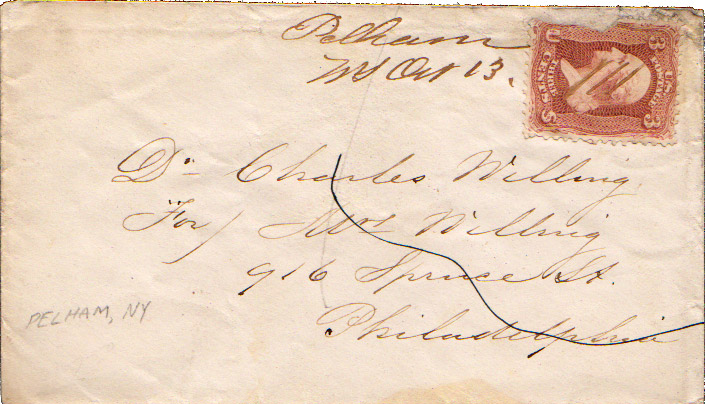 Pelham
NY Oct 13.
Dr Charles Willing
For/ Mrs Willing
916 Spruce St.
Philadelphia
PELHAM, NY
U 3
THREE CENTS
U.S. POSTAGE
S 3